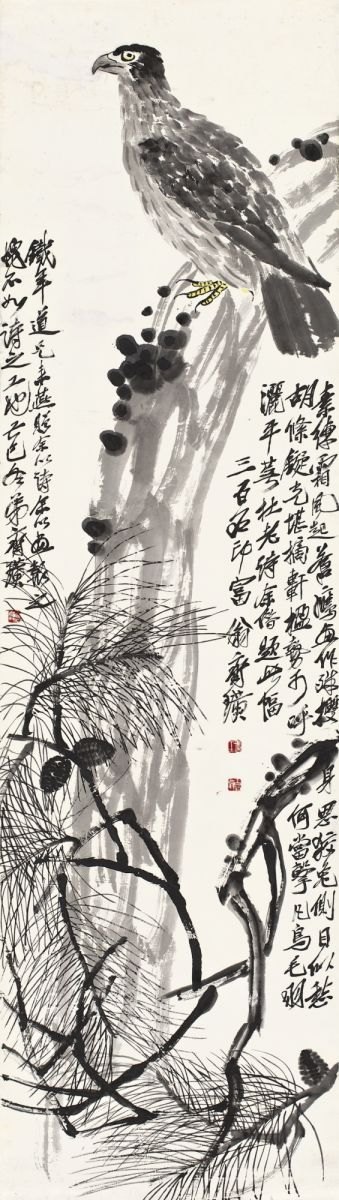 素練霜風起蒼鷹畫作殊㩳身思狡兔側目似愁
胡絛鏇光堪摘軒楹勢可呼何當擊凡鳥毛
灑平蕪杜老詩余借題此幅
三百石印富翁齊璜
鐵年道兄來燕贈余以詩余以畫報之
愧不如詩之工也己巳冬弟齊璜